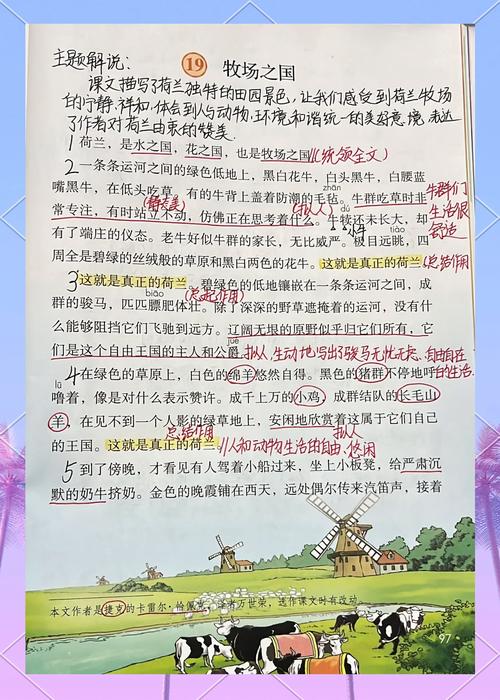 主题解说:
19 牧场之国
课文描写了荷兰独特的田园景色,让我们感受到荷兰牧场
的宁静、祥和,体会到人与动物、环境和谐统一的美好意境,表达
了作者对荷兰由衷的赞美。
1 荷兰,是水之国,花之国,也是牧场之国。(统领全文)
2 一条条运河之间的绿色低地上,黑白花牛,白头黑牛,白腰蓝
嘴黑牛,在低头吃草。有的牛背上盖着防潮的毛毡。牛群吃草时非
zhān
牛群们
生活很
舒适
常专注,有时站立不动,仿佛正在思考着什么。牛犊还未长大,却
(静态美)
(拟人)
dú
小牛
有了端庄的仪态。老牛好似牛群的家长,无比威严。极目远眺,四
tiào
周全是碧绿的丝绒般的草原和黑白两色的花牛。这就是真正的荷兰。
总结作用
3 这就是真正的荷兰。碧绿色的低地镶嵌在一条条运河之间,成
(总起作用)
biāo
群的骏马,匹匹膘肥体壮。除了深深的野草遮掩着的运河,没有什
么能够阻挡它们飞驰到远方。辽阔无垠的原野似乎归它们所有,它
jué
们是这个自由王国的主人和公爵。拟人,生动地写出了骏马无忧无虑、自由自在
的生活。
4 在绿色的草原上,白色的绵羊悠然自得。黑色的猪群不停地呼
lū
噜着,像是对什么表示赞许。成千上万的小鸡,成群结队的长毛山
羊,在见不到一个人影的绿草地上,安闲地欣赏着这属于它们自己
的王国。这就是真正的荷兰。
总结作用
拟人
人和动物生活的自由、悠闲
5 到了傍晚,才看见有人驾着小船过来,坐上小板凳,给严肃沉
默的奶牛挤奶。金色的晚霞铺在西天,远处偶尔传来汽笛声,接着
本文作者是捷克的卡雷尔·恰佩克,译者万世荣,选作课文时有改动。
97